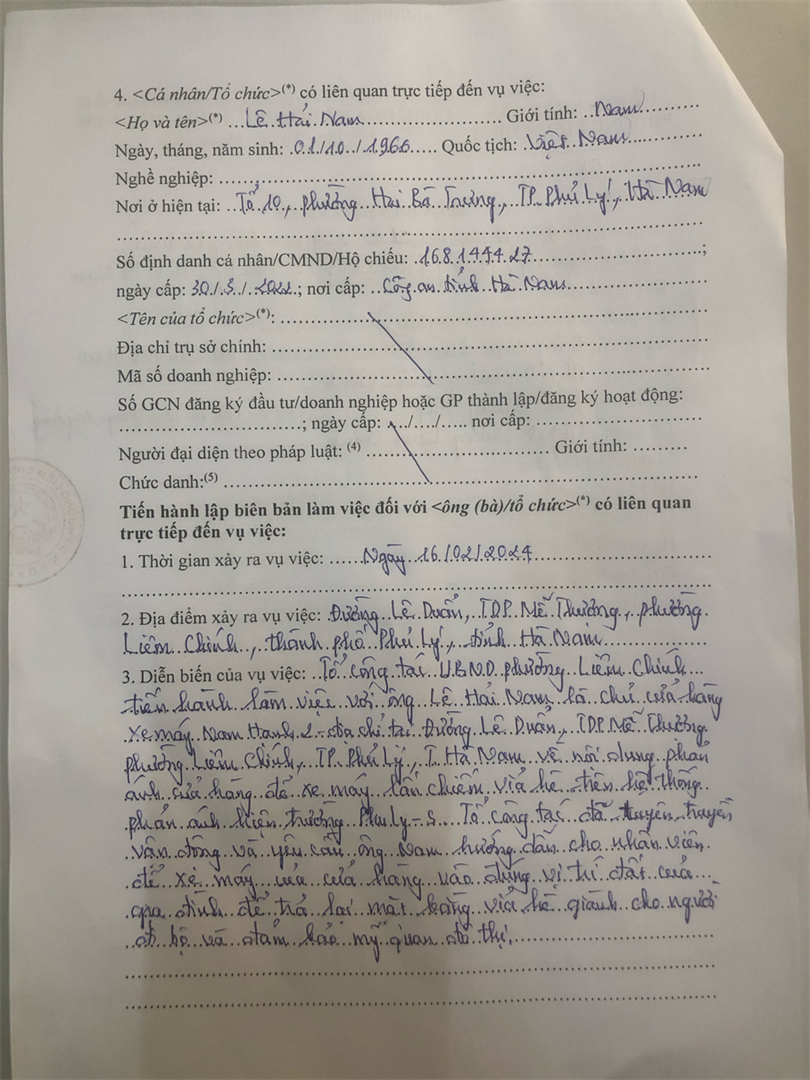 4. <Cá nhân/Tổ chức>(*) có liên quan trực tiếp đến vụ việc:
<Họ và tên>(*) ...Lê Hải Nam........................ Giới tính: ..Nam..........
Ngày, tháng, năm sinh: .01./10../1966..... Quốc tịch: .Việt Nam...............
Nghề nghiệp: ................................................................
Nơi ở hiện tại: ..Tổ 10., phường Hai Bà Trưng, TP. Phủ Lý, Hà Nam
................................................................
Số định danh cá nhân/CMND/Hộ chiếu: .16.8.1
ngày cấp: 30./.3./..2022.; nơi cấp: ..Công an tỉnh Hà Nam....................
<Tên của tổ chức>(*): ................................................................
Địa chỉ trụ sở chính: ................................................................
Mã số doanh nghiệp: ................................................................
Số GCN đăng ký đầu tư/doanh nghiệp hoặc GP thành lập/đăng ký hoạt động:
................................; ngày cấp: .../..../..... nơi cấp: ..............................
Người đại diện theo pháp luật: (4) ................................ Giới tính: .........
Chức danh:(5) ................................................................
Tiến hành lập biên bản làm việc đối với <ông (bà)/tổ chức>(*) có liên quan
trực tiếp đến vụ việc:
1. Thời gian xảy ra vụ việc: ......Ngày 16./02/2024..............................
................................................................
2. Địa điểm xảy ra vụ việc: .Đường Lê Duẩn, TDP. Mễ Thượng, phường
Liêm Chính, thành phố Phủ Lý, tỉnh Hà Nam....................
3. Diễn biến của vụ việc: ..Tổ công tác UBND phường Liêm Chính...
tiến hành làm việc với ông Lê Hải Nam là chủ cửa hàng
xe máy Nam Hạnh 2 - địa chỉ tại Đường Lê Duẩn, TDP Mễ Thượng
phường Liêm Chính, TP. Phủ Lý, T. Hà Nam về nội dung phản
ánh cửa hàng để xe máy lấn chiếm vỉa hè trên hệ thống
phản ánh hiện trường Phủ Lý - S. Tổ công tác đã tuyên truyền
vận động và yêu cầu ông Nam hướng dẫn cho nhân viên
để xe máy của cửa hàng vào đúng vị trí đất của...
gia đình để trả lại mặt bằng vỉa hè giành cho người
đi bộ và đảm bảo mỹ quan đô thị...............................
................................................................
................................................................